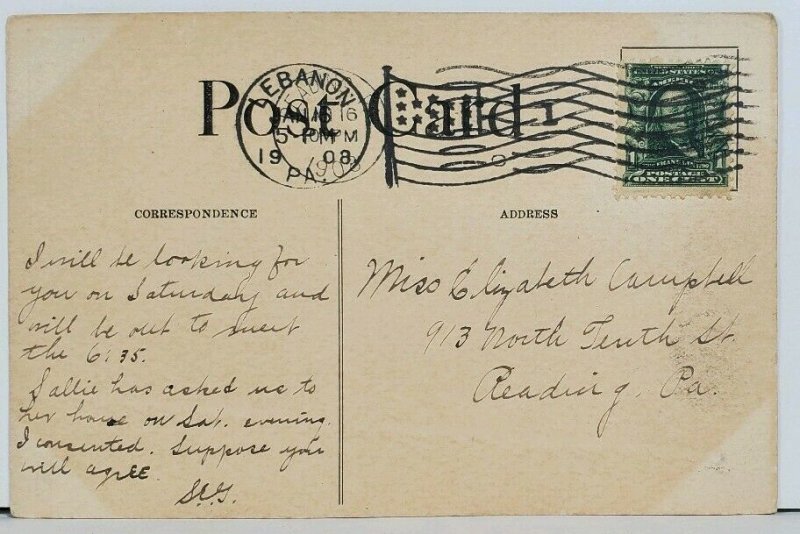 Post Card
LEBANON
JAN 16
5 PM
1908
PA.
1
UNITED STATES OF AMERICA
FRANKLIN
POSTAGE
ONE CENT
CORRESPONDENCE
ADDRESS
I will be looking for
you on Saturday and
will be out to meet
the 6:35.
Sallie has asked us to
her house on Sat. evening.
I consented. Suppose you
will agree.
Miss Elizabeth Campbell
913 North Tenth St.
Reading, Pa.